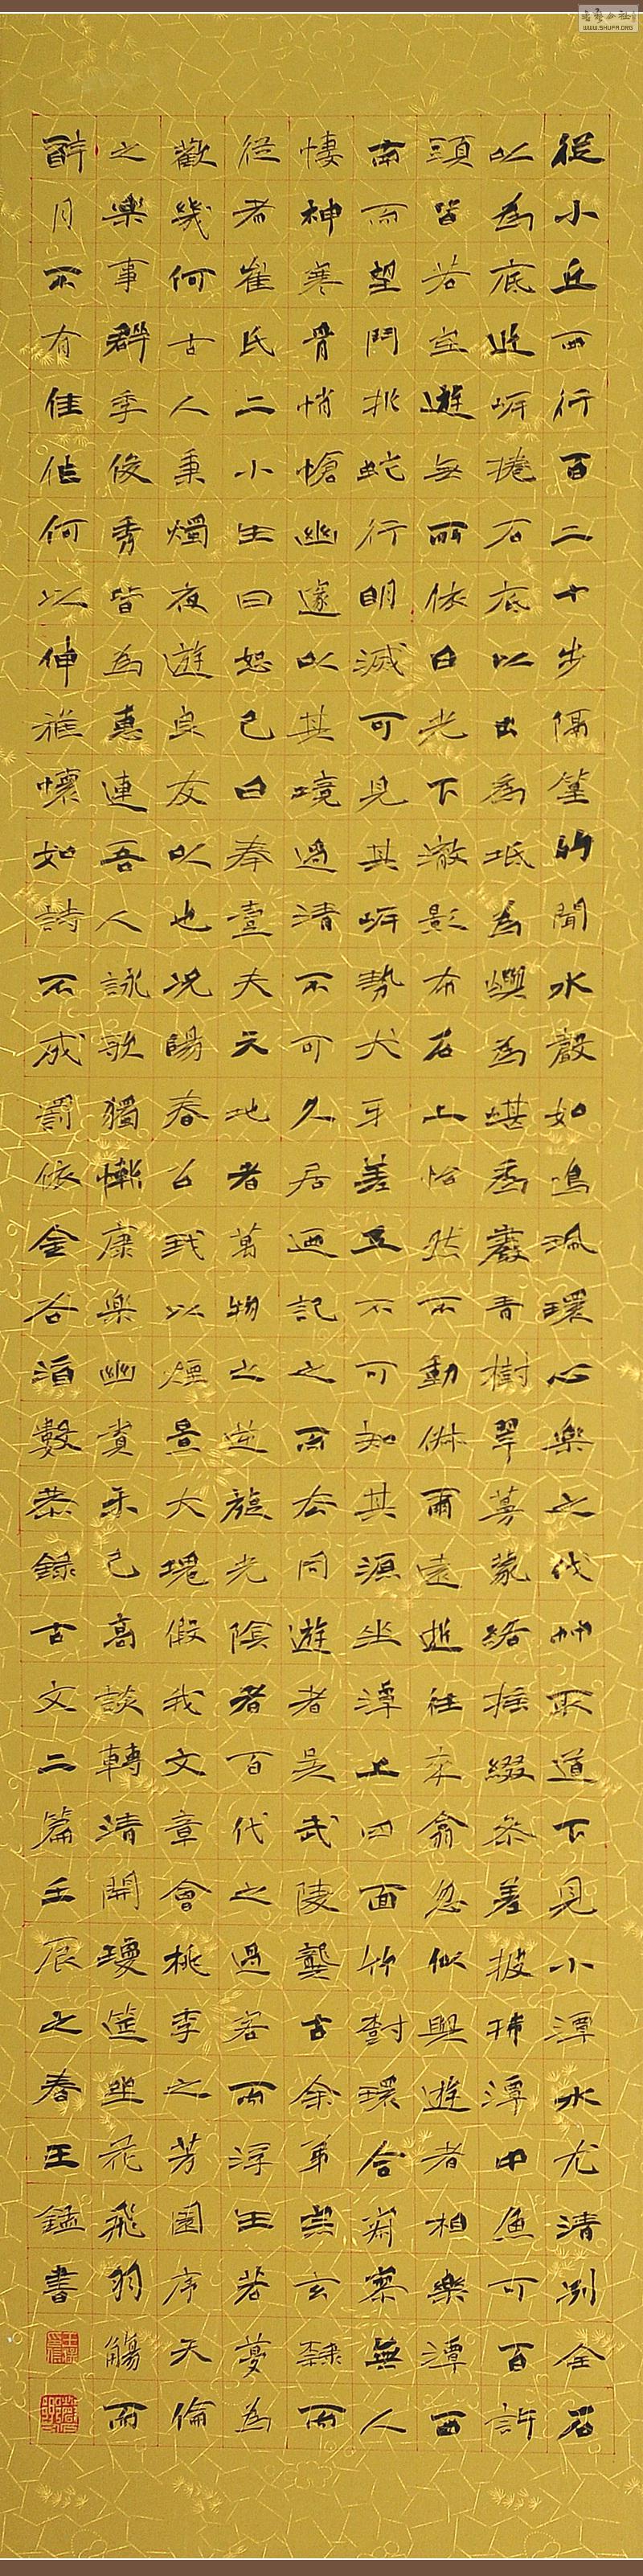 從小丘西行百二十步隔篁竹聞水聲如鳴珮環心樂之伐竹取道下見小潭水尤清冽全石
以為底近岸捲石底以出為坻為嶼為堪為巖青樹翠蔓蒙絡搖綴參差披拂潭中魚可百許
頭皆若空遊無所依日光下澈影布石上怡然不動俶爾遠逝往來翕忽似與遊者相樂潭西
南而望鬥折蛇行明滅可見其岸勢犬牙差互不可知其源坐潭上四面竹樹環合寂寥無人
悽神寒骨悄愴幽邃以其境過清不可久居迺記之而去同遊者吳武陵龔古余弟宗玄隸而
從者崔氏二小生曰恕己曰奉壹夫天地者萬物之逆旅光陰者百代之過客而浮生若夢為
歡幾何古人秉燭夜遊良友以也況陽春召我以煙景大塊假我文章會桃李之芳園序天倫
之樂事群季俊秀皆為惠連吾人詠歌獨慚康樂幽賞未已高談轉清開瓊筵坐花飛羽觴而
醉月不有佳作何以伸雅懷如詩不成罰依金谷酒數恭錄古文二篇壬辰之春王錳書
WWW.SHUFA.ORG